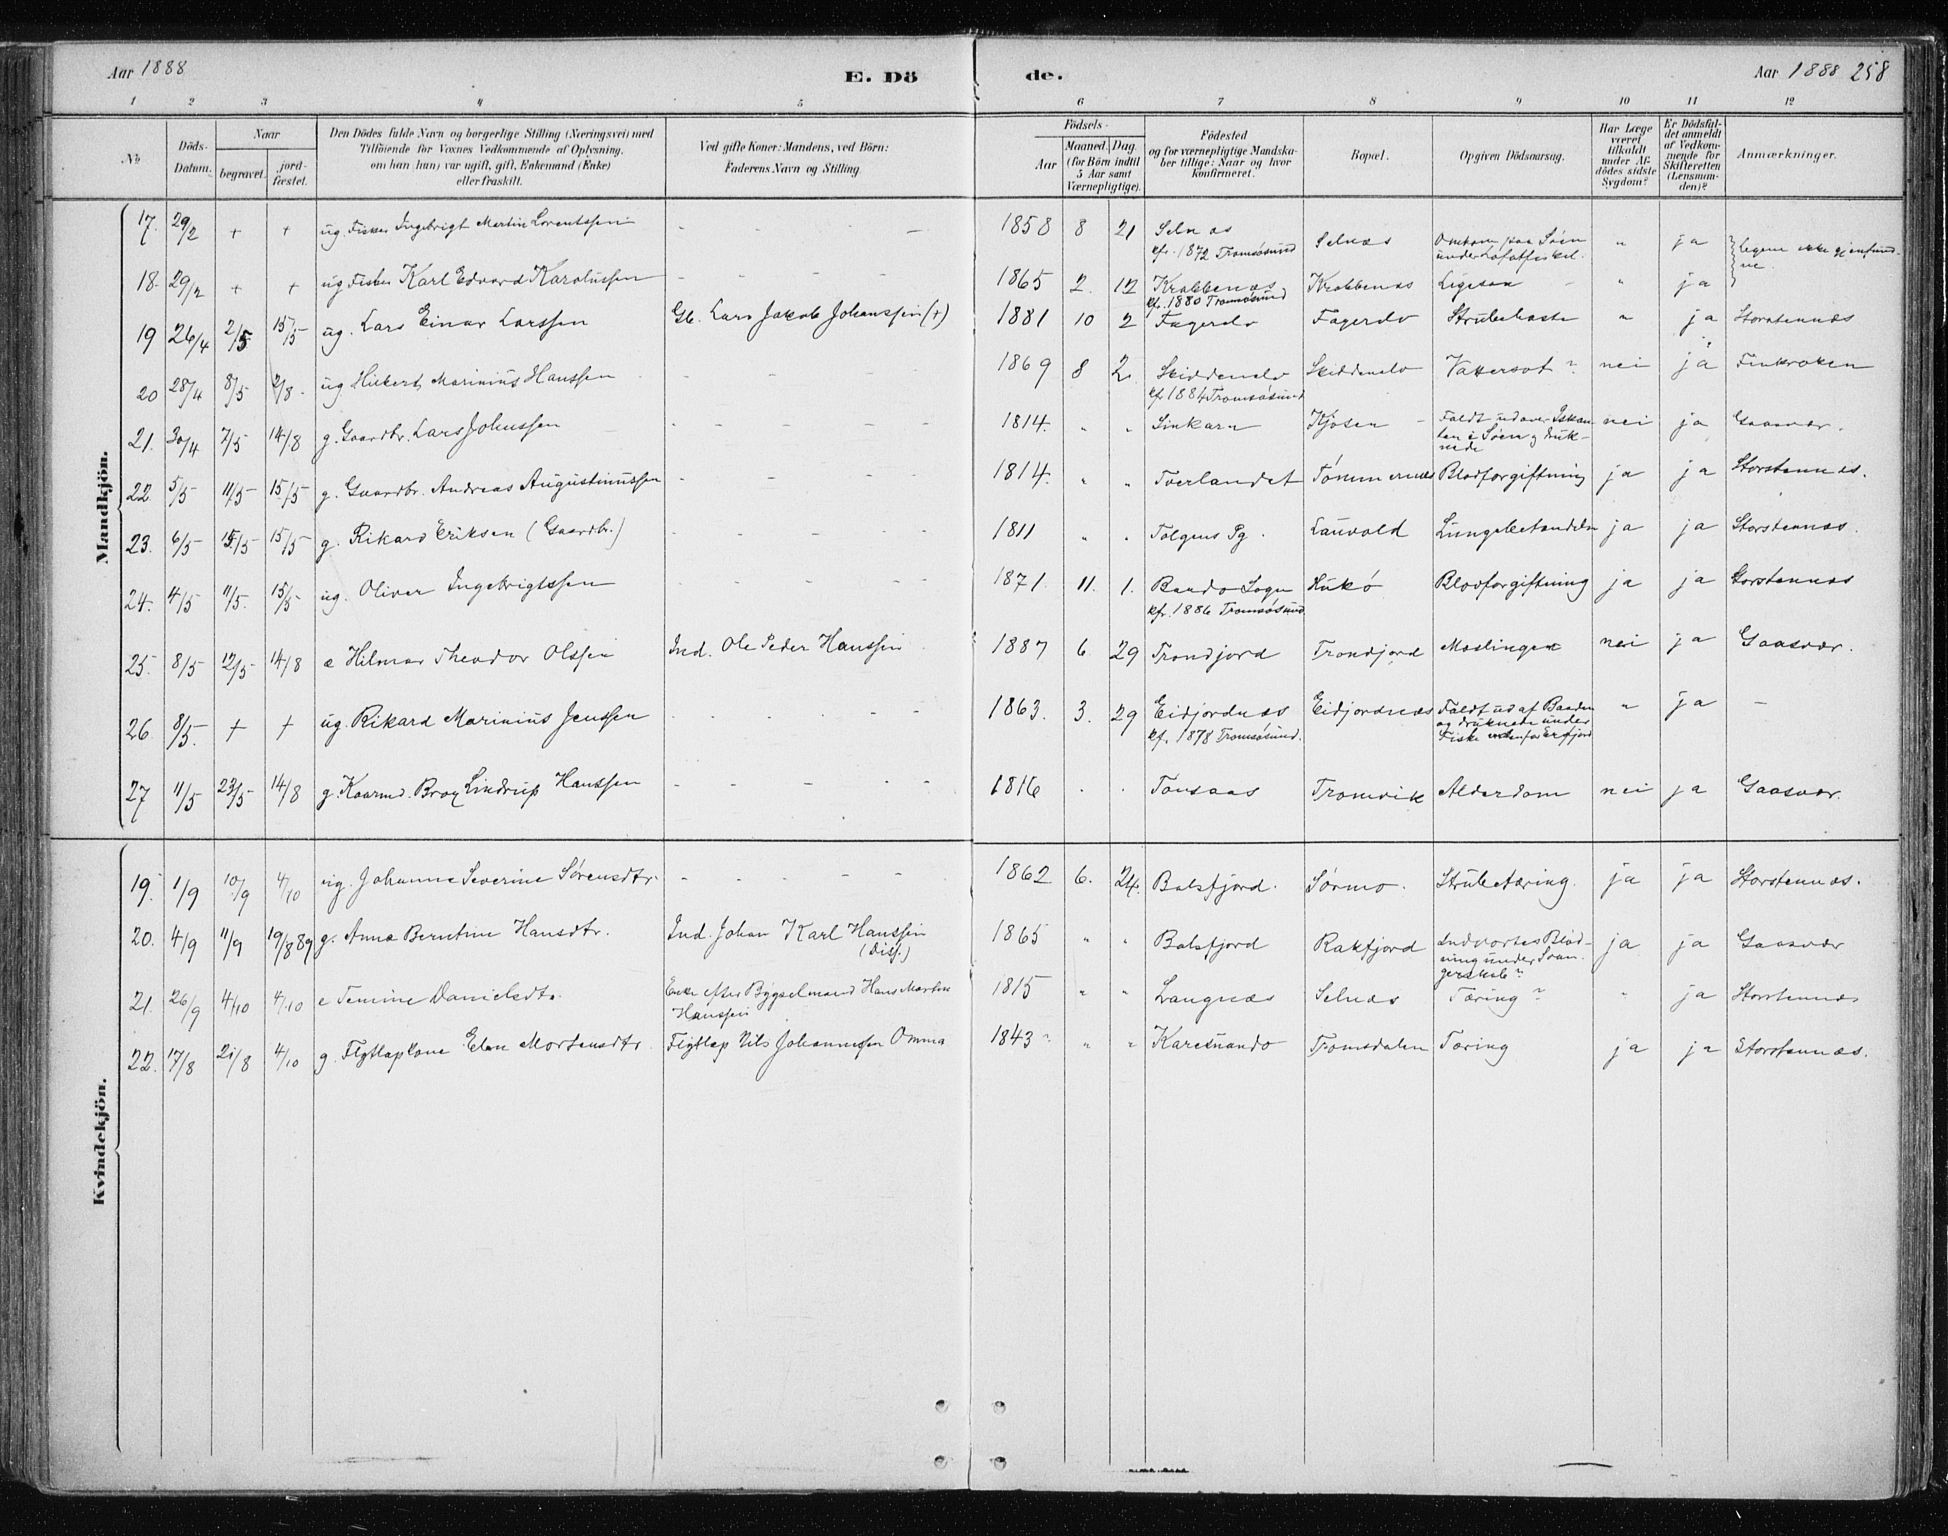 Aar 1888 E. Dö de. Aar 1888 258
1 2 3 4 5 6 7 8 9 10 11 12
No
Döds-Datum.
Naar
begravet.
jord-fæstet.
Den Dödes fulde Navn og borgerlige Stilling (Næringsvei) med
Tilföiende for Voxnes Vedkommende af Oplysning,
om han (hun) var ugift, gift, Enkemand (Enke)
eller fraskilt.
Ved gifte Koner: Mandens, ved Börn:
Faderens Navn og Stilling.
Födsels-
Aar
Maaned. Dag.
(for Börn indtil
5 Aar samt
Værnepligtige).
Födested
og for værnepligtige Mandska-
ber tillige: Naar og hvor
konfirmeret.
Bopæl.
Opgiven Dödsaarsag.
Har Læge
været
tilkaldt
under Af-
dödes sidste
Sygdom?
Er Dödsfal-
det anmeldt
af Vedkom-
mende for
Skifteretten
(Lensman-
den)?
Anmærkninger.
Mandkjön.
17. 29/2 + + ug. Fisker Ingebrigt Martin Lorentssen - - - 1858 8 21 Selnæs Selnæs Omkom paa Søen " ja
kfr. 1872 Tromsøsund under Lofotfisket. Ligene ikke gjenfund-
ne.
18. 29/2 + + ug Fisker Karl Edvard Karolussen - - - 1865 2. 12 Krabbenæs Krabbenæs Ligesaa - " ja
kfr. 1880 Tromsøsund
19 26/4 2/5 15/5 ug. Lars Einar Larssen Gb. Lars Jakob Johanssen (+) 1881 10 2 Fagerelv Fagerelv Strubehoste " ja Storstennæs
20 28/4 8/5 2/8. ug Hilbert Marinius Hanssen - - - 1869 8 2. Skiddenelv Skiddenelv Vattersot? nei ja Finkroken
kfr 1884 Tromsøsund
21. 30/4 7/5 14/8 g. Gaardbr. Lars Johnssen - - - 1814. " " Sinkarn Kjosen - Faldt ud over Iskan- nei ja Gaasvær.
ten i Søen og druk-
nede
22 5/5 11/5 15/5 g. Gaardbr. Andreas Augustinussen - - - 1814. " " Tverlandet Tømmernæs Blodforgiftning ja ja Storstennæs.
23. 6/5 15/5 15/5 g. Rikard Eriksen (Gaardbr.) - - - 1811 " " Tolgens Pg. Lauvold Lungebetændelse ja ja Storstennæs.
24. 4/5 11/5. 15/5 ug. Oliver Ingebrigtssen - - - 1871. 11. 1. Bardo Sogn Kukø Blodforgiftning ja ja Storstennæs
kfr. 1886 Tromsøsund
25. 8/5 12/5 14/8 e Hilmar Theodor Olssen Ind. Ole Peder Hanssen 1887 6. 29 Trondjord Trondjord Mæslinger nei ja Gaasvær.
26. 8/5. + + ug. Rikard Marinius Jenssen - - - 1863. 3. 29 Eidjordnæs Eidjordnæs Faldt ud af Baaden " ja -
kfr. 1878 Tromsøsund. og druknede under
Fiske udenfor Ersfjord
27 11/5 23/5 14/8 g. Kaarmd. Broy Lindrup Hanssen - - - 1816 . . Tonsaas Tromvik Alderdom nei ja Gaasvær.
Kvindekjön.
19. 1/9 10/9 4/10 ug. Johanne Severine Sørensdtr. - - - 1862 6. 24. Balsfjord. Sørmo. Strubetæring. ja ja Storstennæs.
20. 4/9 11/9 19/8 89 g. Anna Berntine Hansdtr. Ind. Johan Karl Hanssen 1865 " " Balsfjord Rakfjord Indvortes Blød- ja ja Gaasvær
(diss.) ning under Svan-
gerskab?
21. 26/9 4/10 4/10 e Temine Danielsdtr. Enke efter Bygselmand Hans Martin 1815 " " Langnæs Selnæs Tæring? " ja Storstennæs
Hanssen
22. 17/8 21/8 4/10 g. Flytlapkone Elen Mortensdtr. Flytlap Nils Johannessen Omma 1843? " " Karesuando Tromsdalen Tæring ja ja Storstennæs.